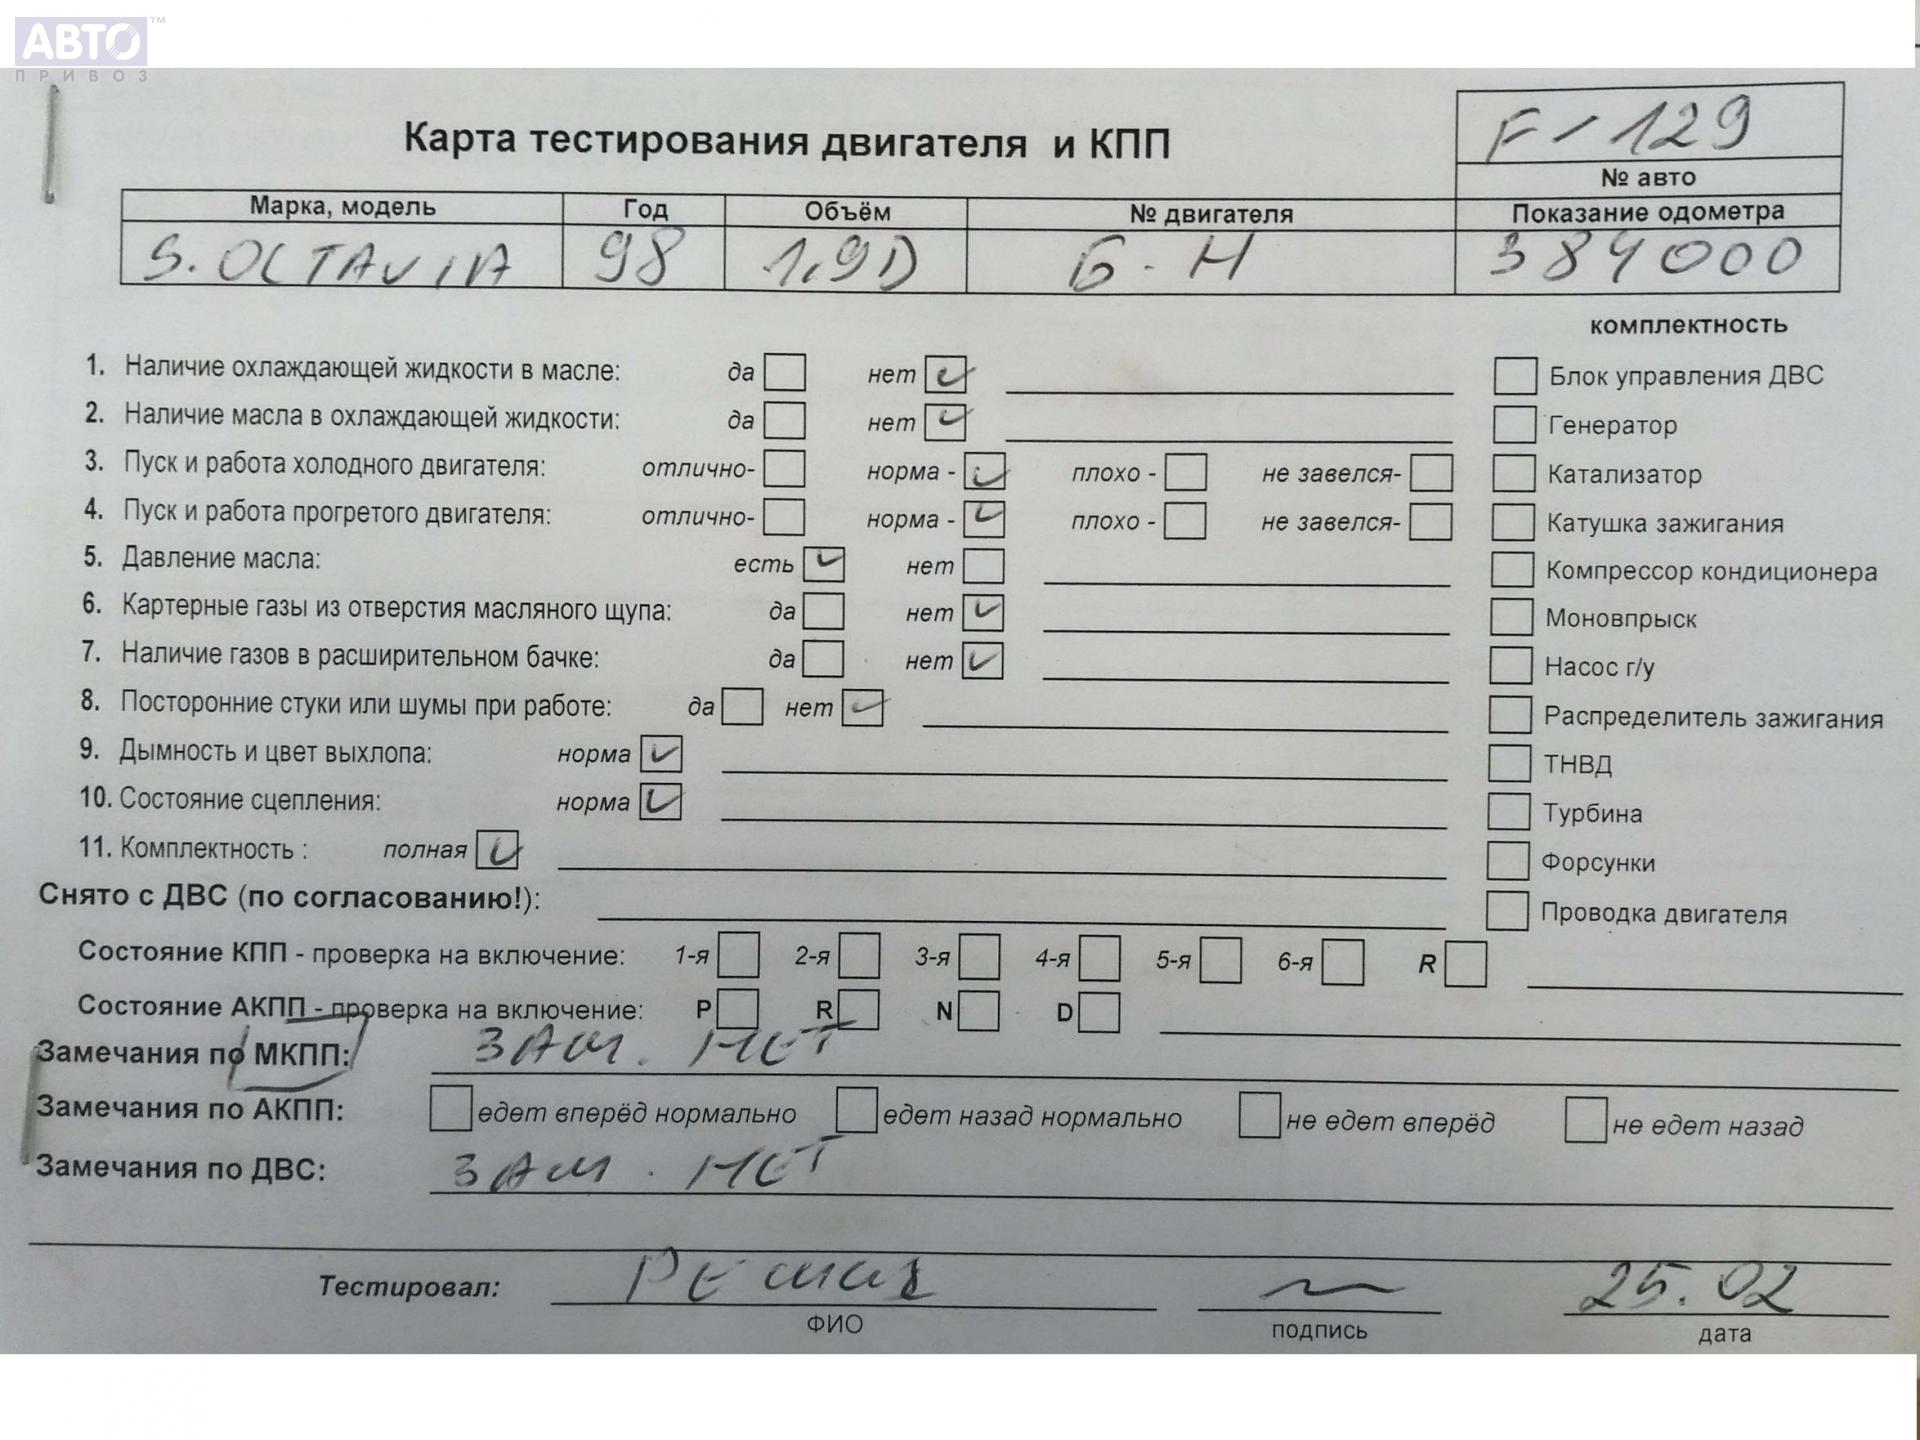 АВТО™
ПРИВОЗ
F-129
Карта тестирования двигателя и КПП
№ авто
Марка, модель Год Объём № двигателя Показание одометра
S. OCTAVIA 98 1,9D Б-Н 384000
комплектность
1. Наличие охлаждающей жидкости в масле: да нет
Блок управления ДВС
2. Наличие масла в охлаждающей жидкости: да нет
Генератор
3. Пуск и работа холодного двигателя: отлично- норма - плохо - не завелся-
Катализатор
4. Пуск и работа прогретого двигателя: отлично- норма - плохо - не завелся-
Катушка зажигания
5. Давление масла: есть нет
Компрессор кондиционера
6. Картерные газы из отверстия масляного щупа: да нет
Моновпрыск
7. Наличие газов в расширительном бачке: да нет
Насос г/у
8. Посторонние стуки или шумы при работе: да нет
Распределитель зажигания
9. Дымность и цвет выхлопа: норма
ТНВД
10. Состояние сцепления: норма
Турбина
11. Комплектность : полная
Форсунки
Снято с ДВС (по согласованию!):
Проводка двигателя
Состояние КПП - проверка на включение: 1-я 2-я 3-я 4-я 5-я 6-я R
Состояние АКПП - проверка на включение: P R N D
Замечания по МКПП: ЗАМ. НЕТ
Замечания по АКПП: едет вперёд нормально едет назад нормально не едет вперёд не едет назад
Замечания по ДВС: ЗАМ. НЕТ
Тестировал: 25.02
ФИО подпись дата